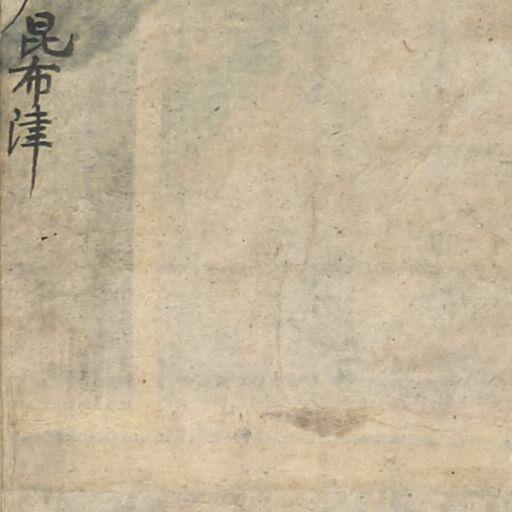 昆布津